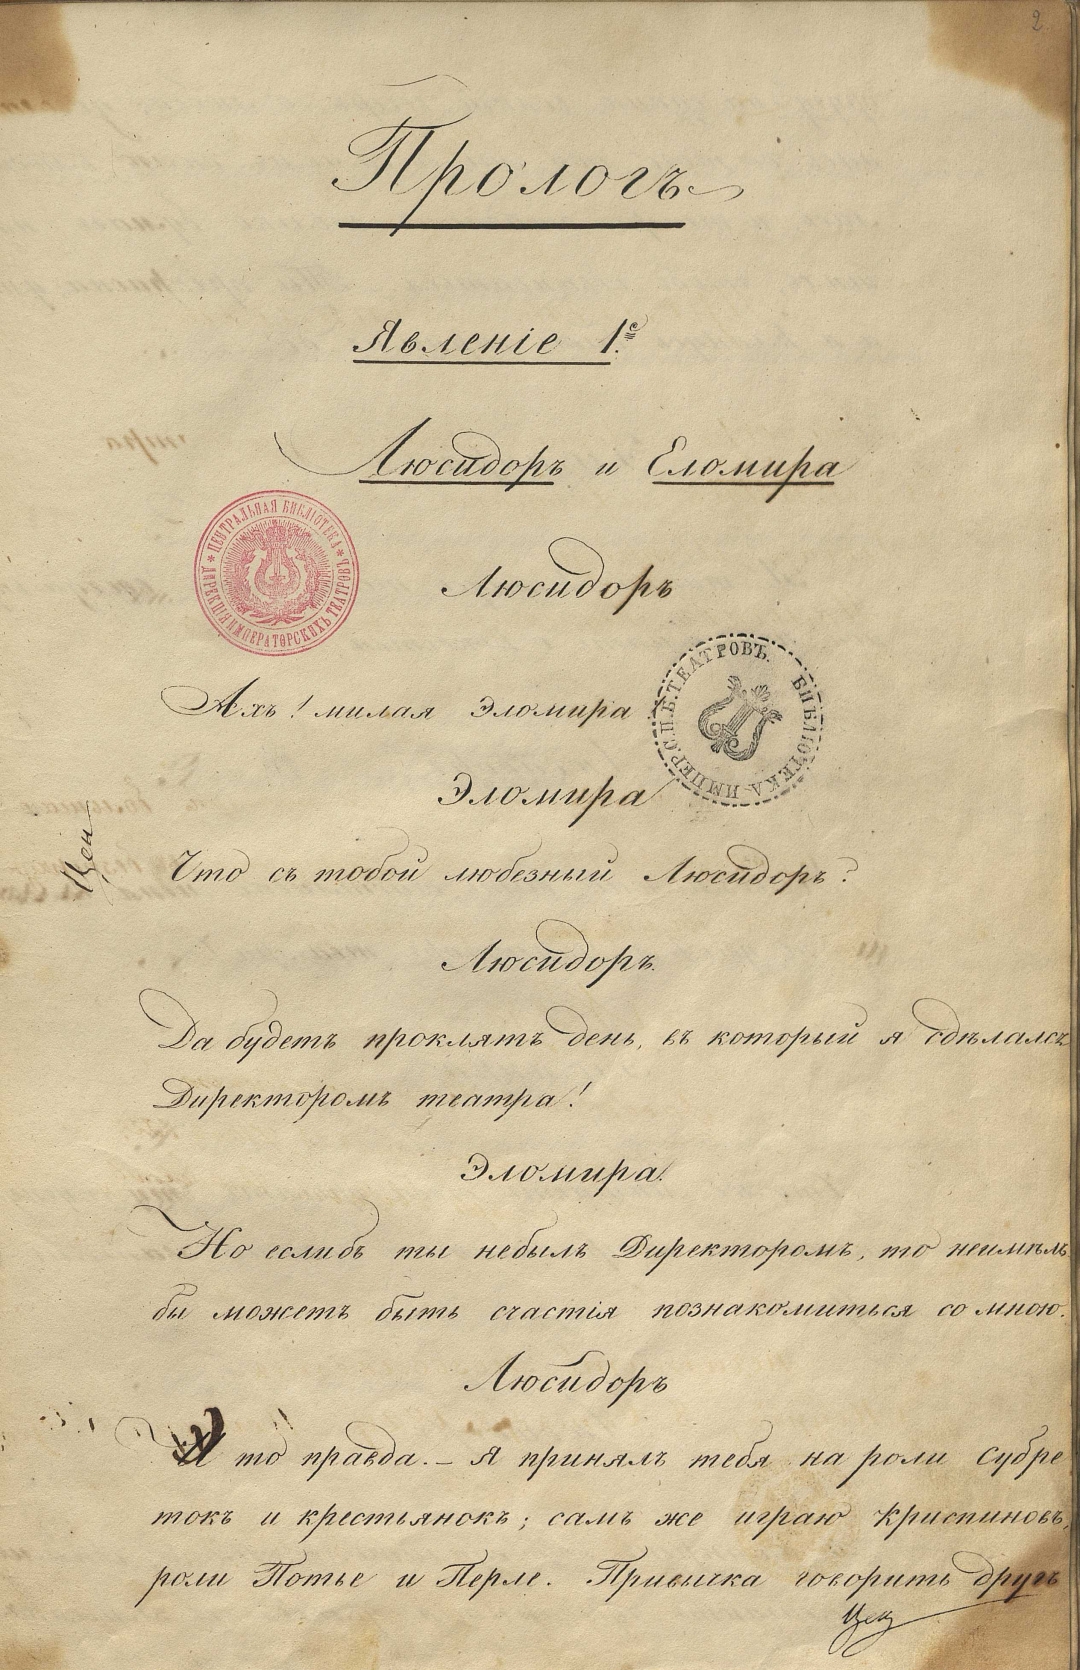 2
Прологъ
Явленіе 1.е
Люсидоръ и Еломира
Люсидоръ
ЦЕНТРАЛЬНАЯ БИБЛІОТЕКА * ДИРЕКЦІИ ИМПЕРАТОРСКИХЪ ТЕАТРОВЪ *
БИБЛІОТЕКА ИМПЕР. С.П.Б. ТЕАТРОВЪ.
Ахъ! милая Эломира
Эломира
Цен
Что съ тобой любезный Люсидоръ?
Люсидоръ.
Да будетъ проклятъ день, въ который я сдѣлался
Директоромъ театра!
Эломира.
Но еслибъ ты небылъ Директоромъ, то неимѣлъ
бы можетъ быть счастія познакомиться со мною.
Люсидоръ
И то правда. — Я принялъ тебя на роли Субре
токъ и крестьянокъ; самъ же играю Криспиновъ,
роли Потье и Перле. Привычка говорить другъ